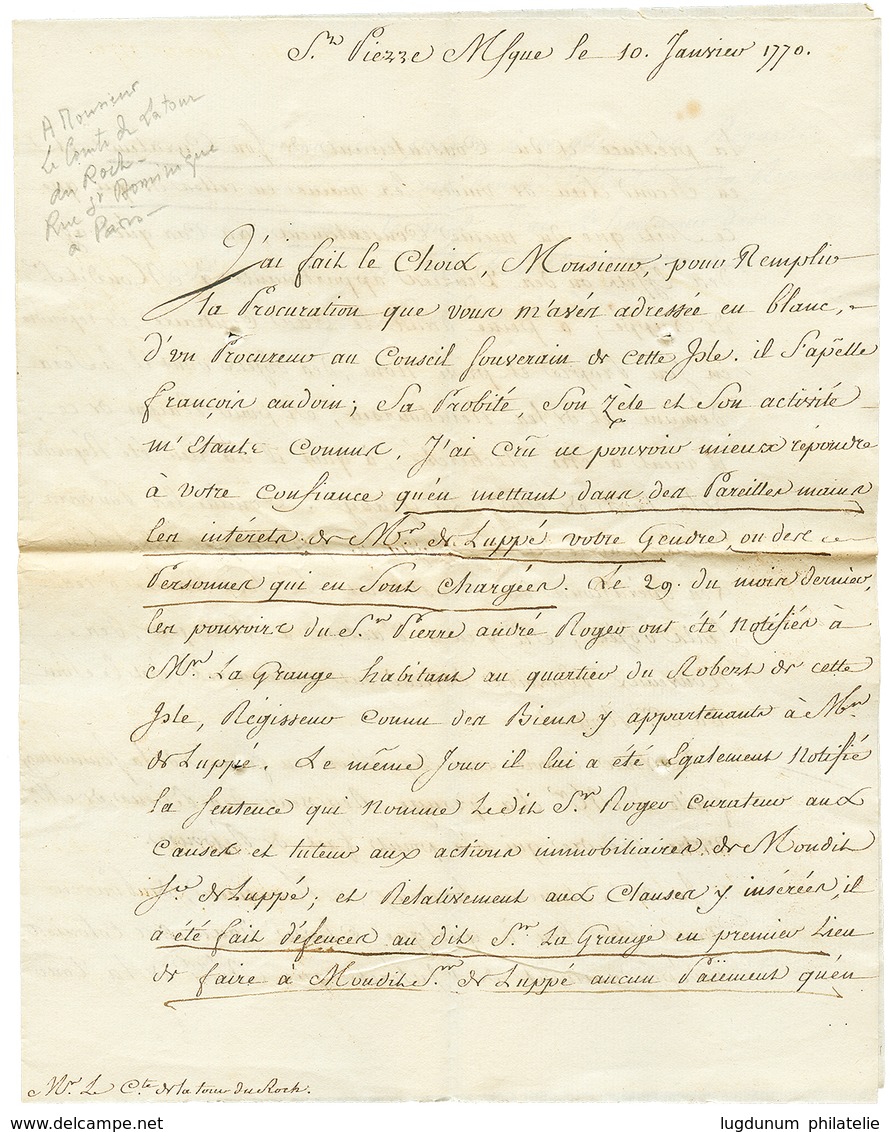 St Pierre Mque le 10. Janvier 1770.
A Monsieur
Le Comte de Latour
du Roch -
Rue St Dominique
à Paris -
J'ai fait le Choix, Monsieur, pour Remplir
la Procuration que vous m'avés adressée en blanc,
d'un Procureur au Conseil souverain de cette Isle. il s'apelle
françois audoin; Sa Probité, Son Zéle et Son activité
m'Etants Connus, J'ai Crû ne pouvoir mieux répondre
à votre Confiance qu'en mettant dans des Pareilles mains
les intérets de Mr. de Luppé votre Gendre, ou des
Personnes qui en Sont Chargées. Le 29. du mois dernier,
les pouvoirs du Sr. Pierre andré Roger ont été Notifiés à
Mr. La Grange habitant au quartier du Robert de cette
Isle, Régisseur Connu des Biens y appartenants à Mr.
de Luppé. Le même Jour il lui a été Egalement Notifié
la Sentence qui Nomme Ledit Sr. Roger Curateur aux
Causes et tuteur aux actions immobiliaires de Mondit
Sr. de Luppé; et Relativement aux Clauses y insérées, il
a été fait défences au dit Sr. La Grange en premier Lieu
de faire à Mondit Sr. de Luppé aucun Païement qu'en
Mr. Le Cte. de la tour du Roch.
lugdunum philatelie